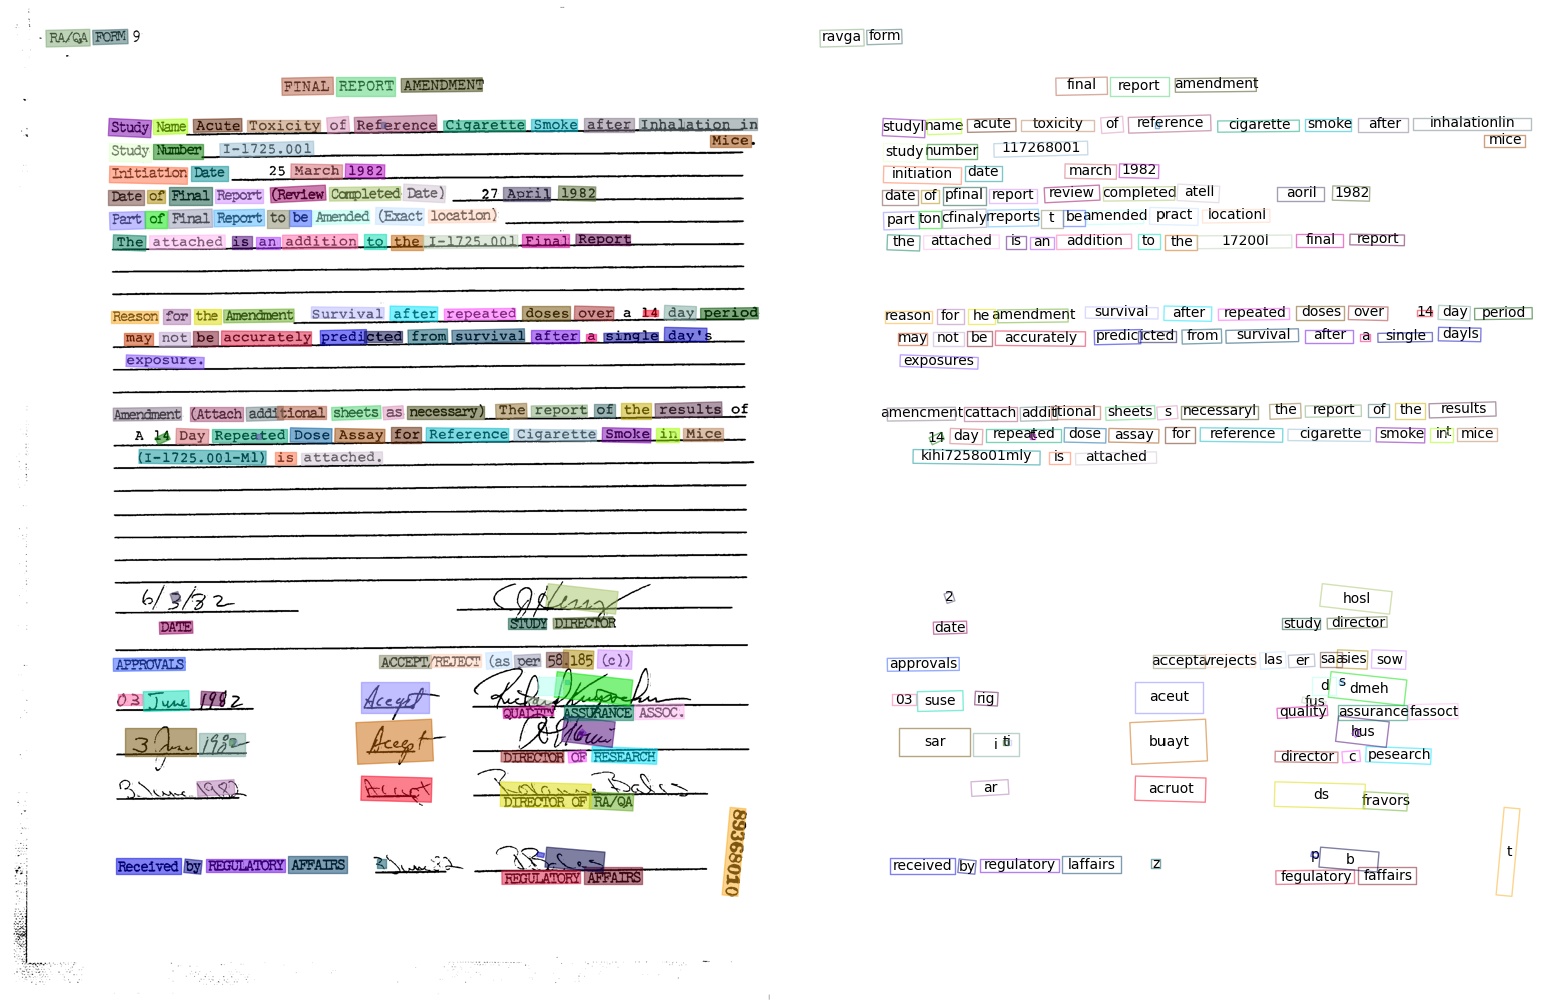 RA/QA FORM 9
FINAL REPORT AMENDMENT
Study Name Acute Toxicity of Reference Cigarette Smoke after Inhalation in
Mice.
Study Number I-1725.001
Initiation Date 25 March 1982
Date of Final Report (Review Completed Date) 27 April 1982
Part of Final Report to be Amended (Exact location)
The attached is an addition to the I-1725.001 Final Report
Reason for the Amendment Survival after repeated doses over a 14 day period
may not be accurately predicted from survival after a single day's
exposure.
Amendment (Attach additional sheets as necessary) The report of the results of
A 14 Day Repeated Dose Assay for Reference Cigarette Smoke in Mice
(I-1725.001-M1) is attached.
6/3/82
DATE STUDY DIRECTOR
APPROVALS ACCEPT/REJECT (as per 58.185 (c))
03 June 1982 Accept
QUALITY ASSURANCE ASSOC.
3 June 1982 Accept
DIRECTOR OF RESEARCH
3 June 1982 Accept
DIRECTOR OF RA/QA
Received by REGULATORY AFFAIRS 3 June 82
REGULATORY AFFAIRS
89368010
ravga form
final report amendment
studyl name acute toxicity of reference cigarette smoke after inhalationlin
mice
study number 117268001
initiation date march 1982
date of pfinal report review completed atell aoril 1982
part ton cfinaly reports t be amended pract locationl
the attached is an addition to the 17200l final report
reason for he amendment survival after repeated doses over 14 day period
may not be accurately predic icted from survival after a single dayls
exposures
amencment cattach addit itional sheets s necessaryl the report of the results
14 day repeated dose assay for reference cigarette smoke in t mice
kihi7258o01mly is attached
2 hosl
date study director
approvals accepta rejects las er saa sies sow
03 suse rig aceut d s dmeh
fus
quality assurance fassoct
sar i buayt hus
director c pesearch
ar acruot ds
fravors
received by regulatory laffairs z p b
fegulatory faffairs
t